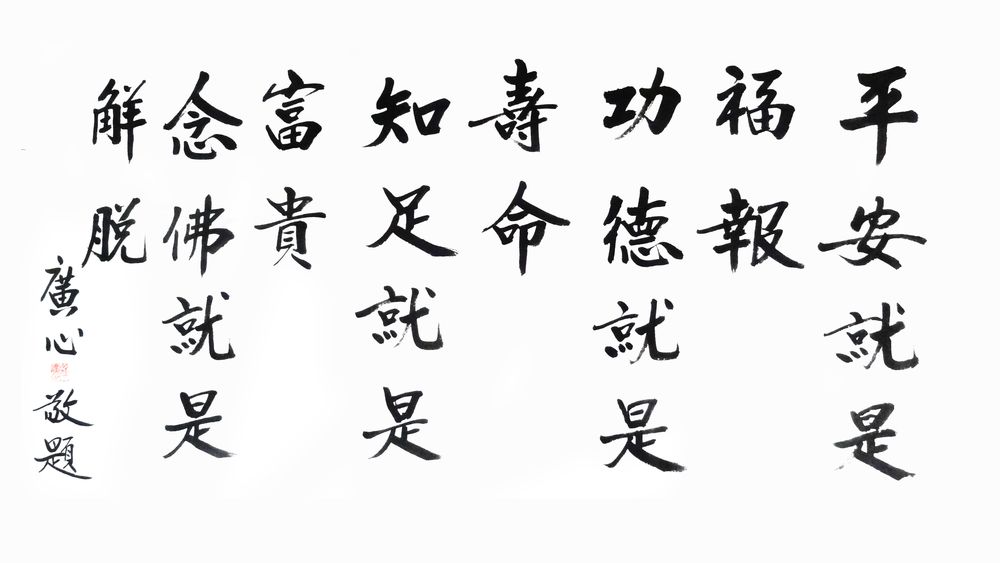 平安就是
福報
功德就是
壽命
知足就是
富貴
念佛就是
解脱
廣心敬題